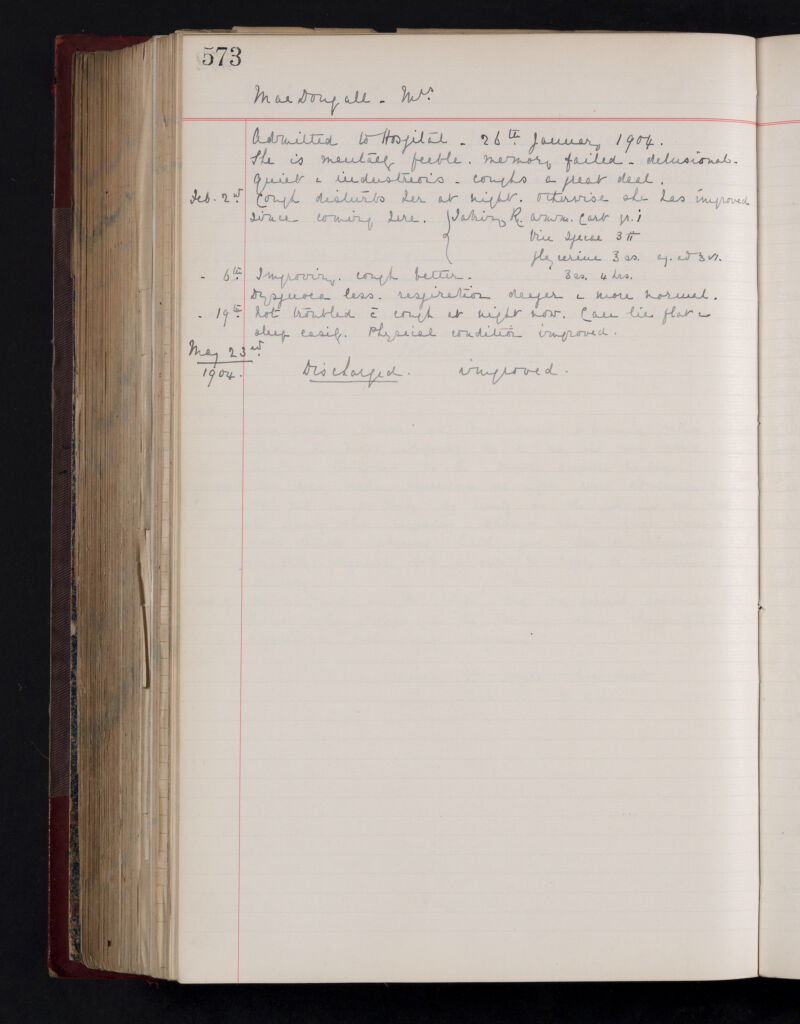 573
MacDougall - Mrs.
Admitted to Hospital - 26th January 1904.
She is mentally feeble. memory failed - delusional.
Quiet & industrious - coughs a great deal.
Feb. 2nd Cough disturbs her at night. Otherwise she has improved
since coming here. { Taking ℞ ammon. Carb gr. i
Vin Ipecac ʒ ii
Glycerine ʒ ss. aq. ad ʒ vi.
- 6th Improving. cough better. ʒ ss. 4 hrs.
Dyspnoea less. respiration deeper & more normal.
- 19th Not troubled c̄ cough at night now. Can lie flat &
sleep easily. Physical condition improved.
May 23rd
1904. Discharged. improved.